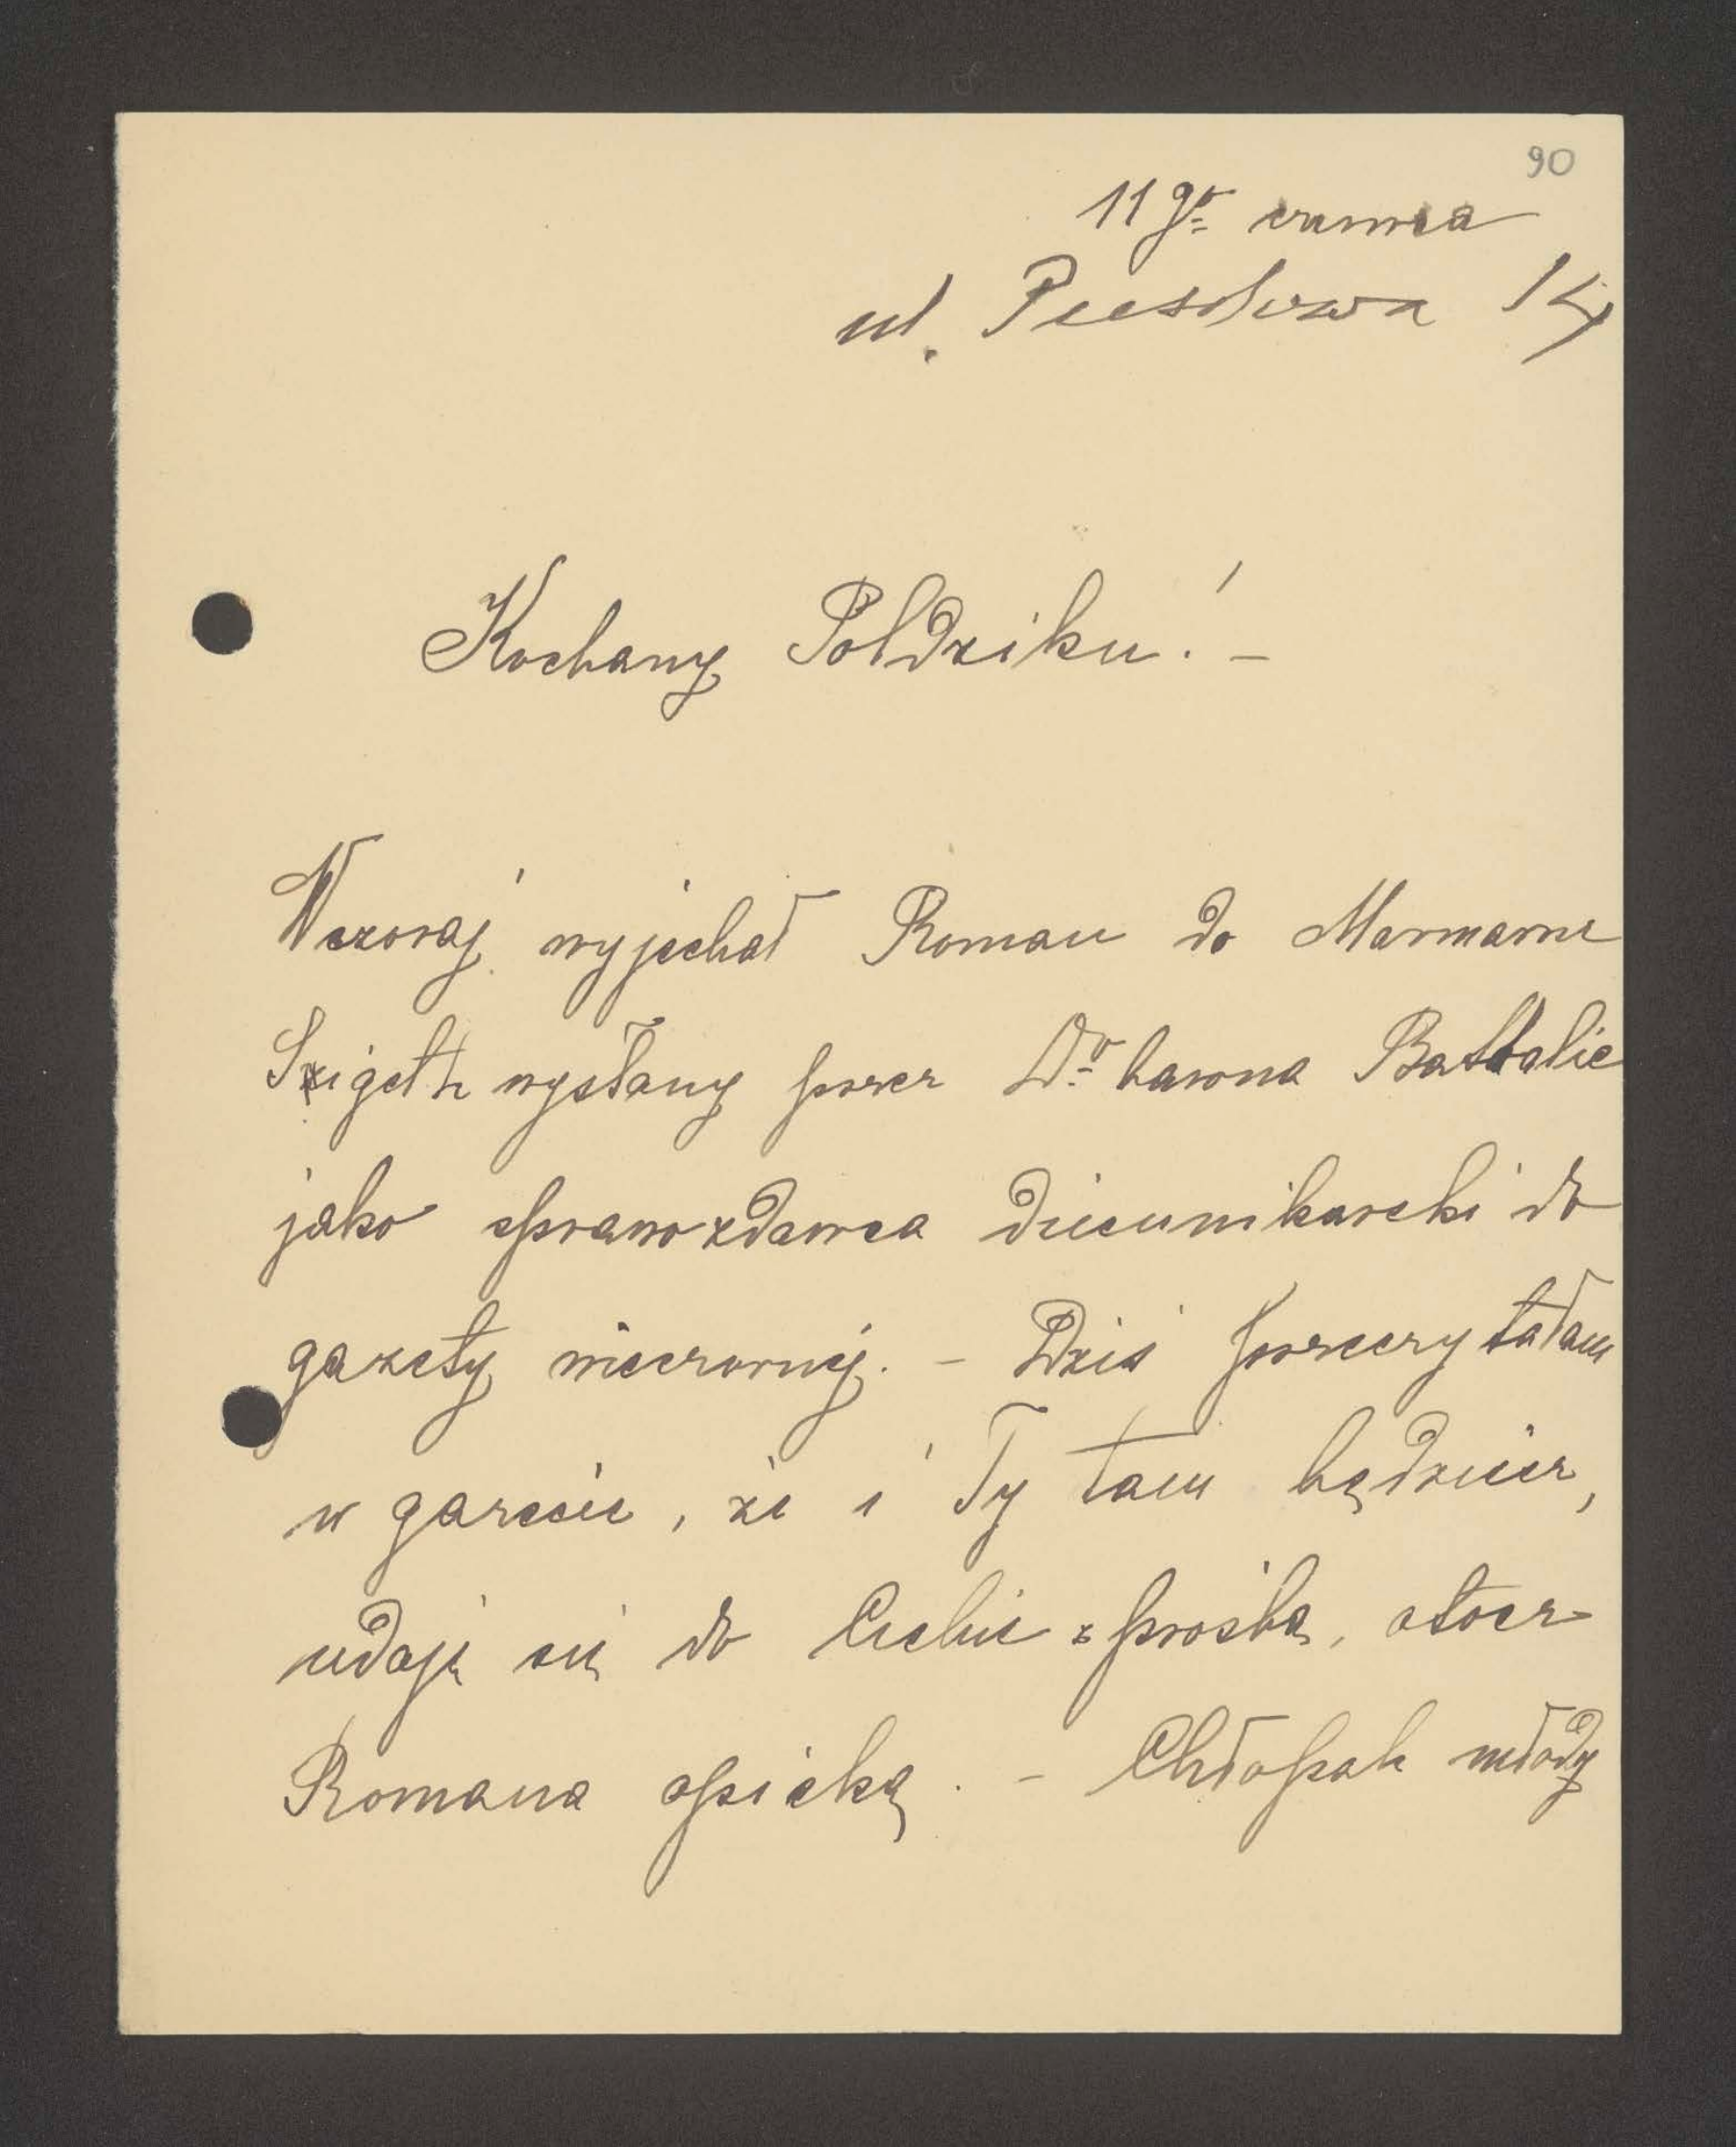 90
11go czerwca
ul. 14
Kochany Poldziku! –
Wczoraj wyjechał Roman do Marmaros
Szigeth wysłany przez Dra barona Battalie
jako sprawozdawca dziennikarski do
gazety wieczornej. – Dziś przeczytałam
w gazecie, że i Ty tam będziesz,
udaję się do Ciebie z prośbą, otocz
Romana opieką. – Chłopak młody